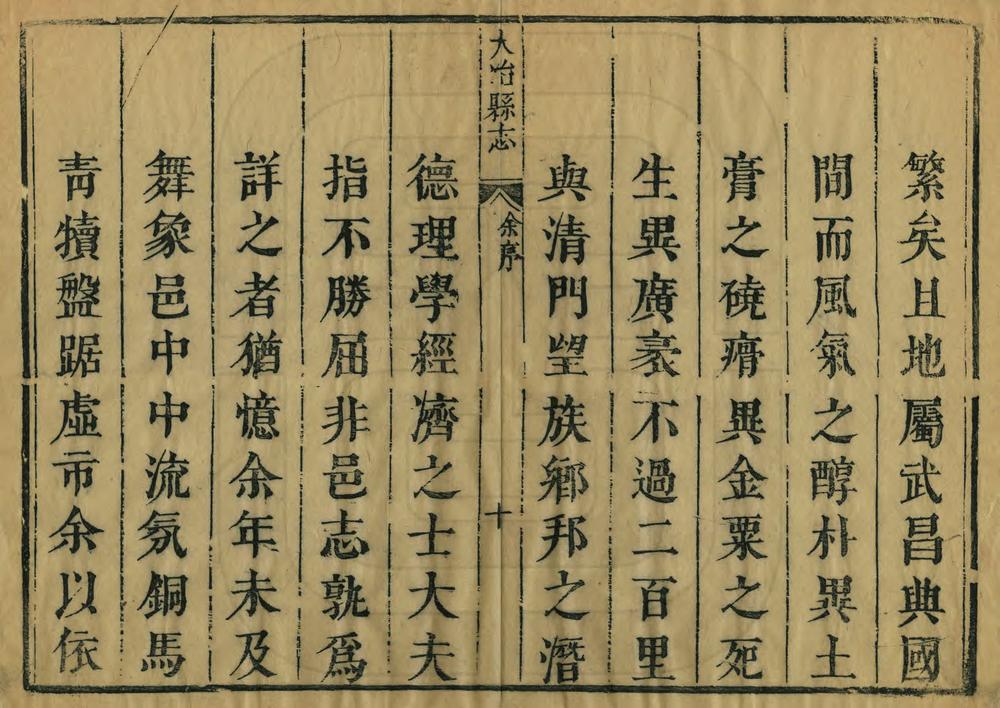 繁矣且地屬武昌典國
間而風氣之醇朴異土
膏之磽瘠異金粟之死
生異廣袤不過二百里
與清門望族鄉邦之潛
大冶縣志
余序
十
德理學經濟之士大夫
指不勝屈非邑志孰爲
詳之者猶憶余年未及
舞象邑中中流氛銅馬
靑犢盤踞虛市余以依